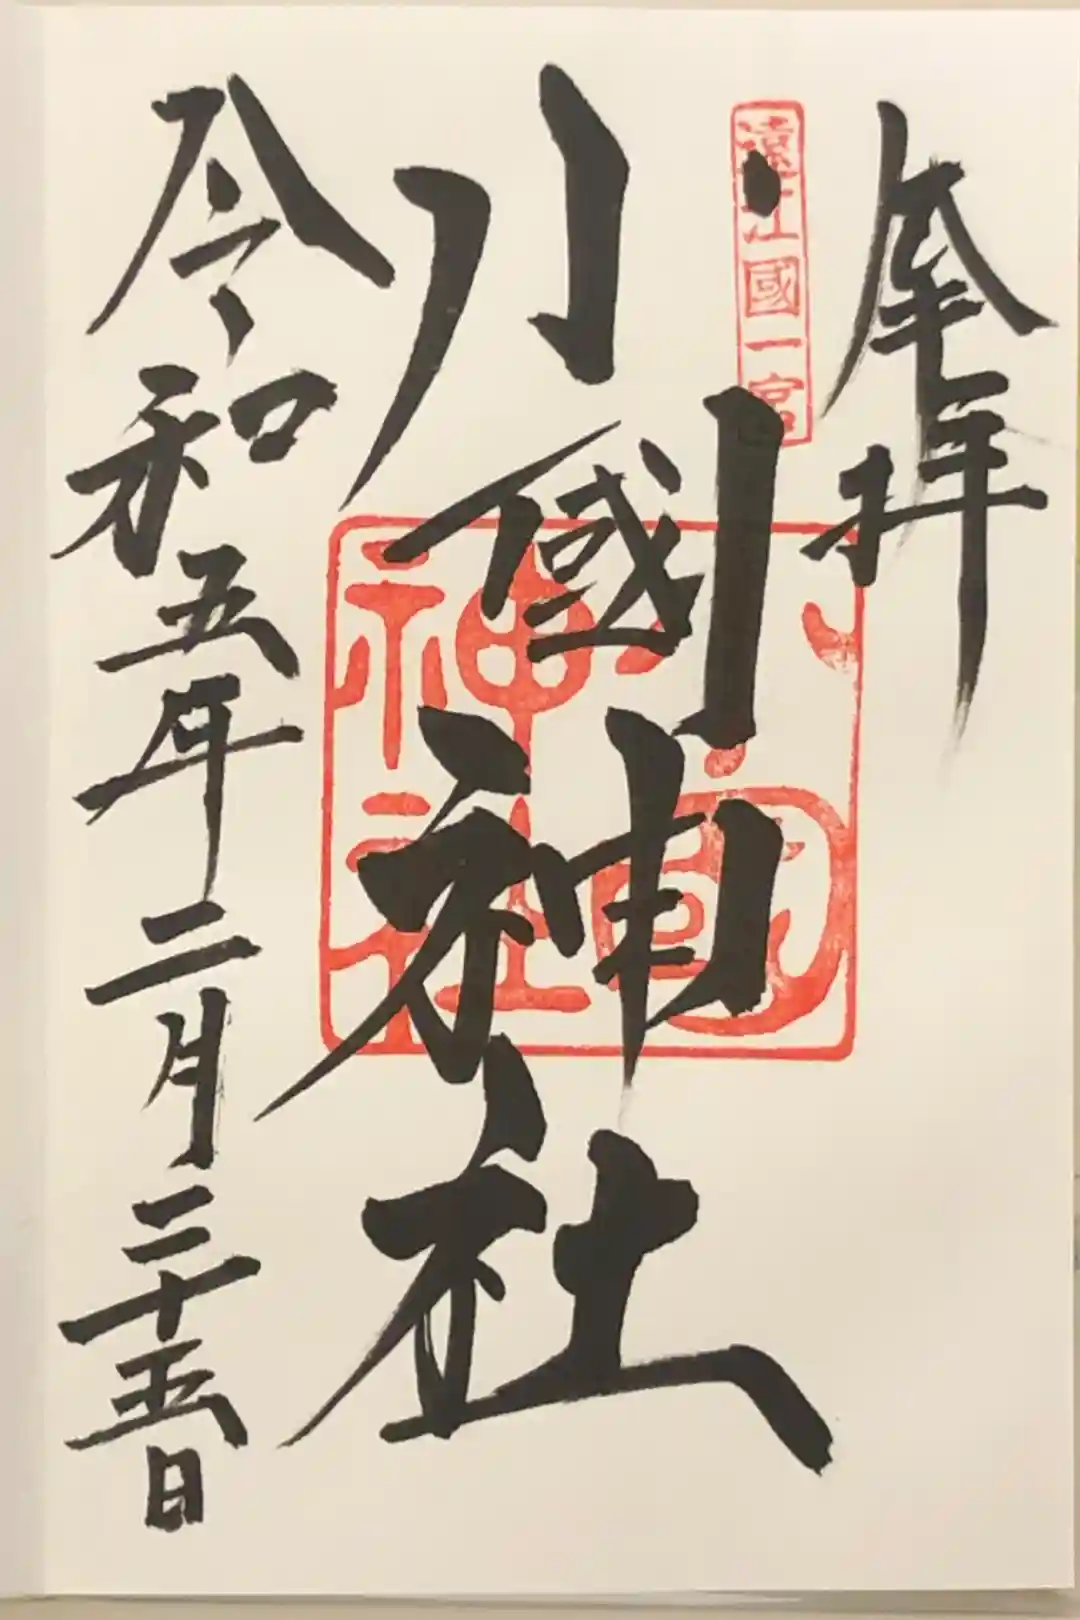 奉拝
遠江國一宮
小國神社
小國
神社
令和五年二月二十五日